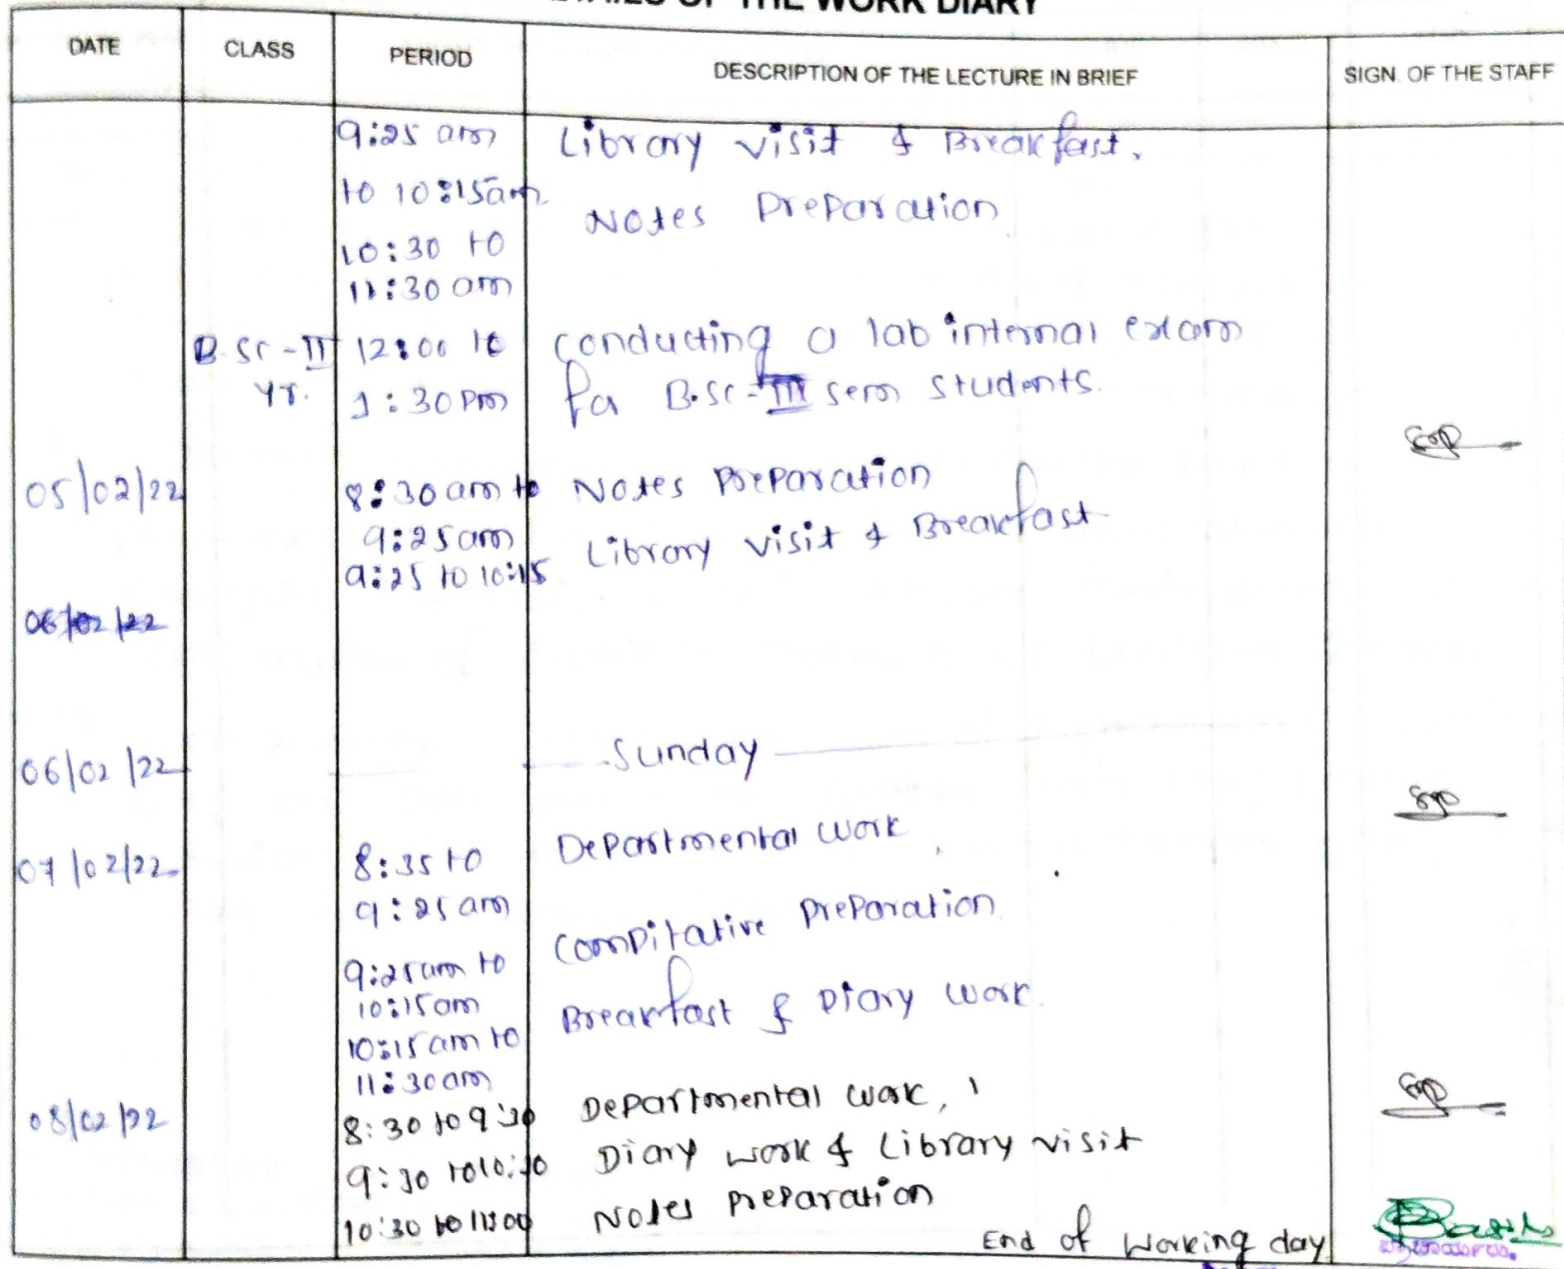 OF THE WORK DIARY
DATE CLASS PERIOD DESCRIPTION OF THE LECTURE IN BRIEF SIGN. OF THE STAFF
9:25 am Library visit & Breakfast.
to 10:15am
Notes Preparation
10:30 to
11:30 am
B.Sc-II 12:00 to conducting a lab internal exam
yr. 1:30 Pm for B.Sc-III sem students.
05/02/22 8:30 am to Notes Preparation
9:25 am
9:25 to 10:15 Library visit & Breakfast
06/02/22
06/02/22 Sunday
07/02/22 8:35 to Departmental work,
9:25 am
Compitative Preparation
9:25am to
10:15am
Breakfast & Diary work.
10:15 am to
11:30am
08/02/22 8:30 to 9:30 Departmental work,
9:30 to 10:30 Diary work & Library visit
10:30 to 11:00 Notes preparation
End of working day